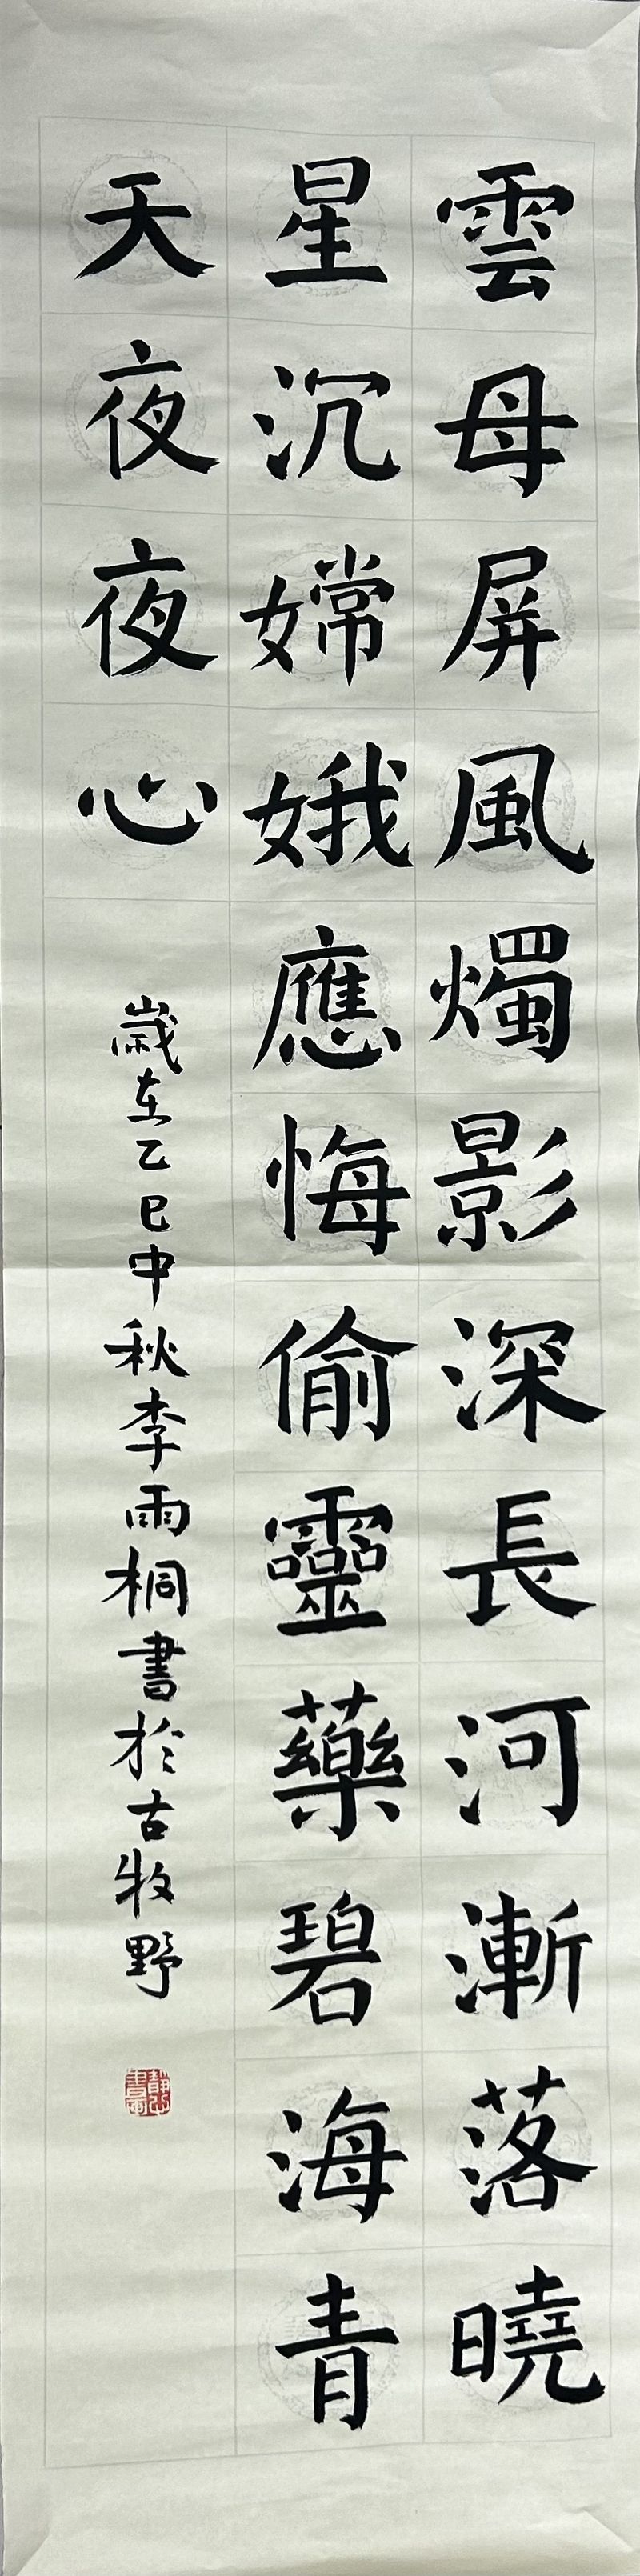 雲母屏風燭影深長河漸落曉
星沉嫦娥應悔偷靈藥碧海青
天夜夜心
歲在乙巳中秋李雨桐書於古牧野